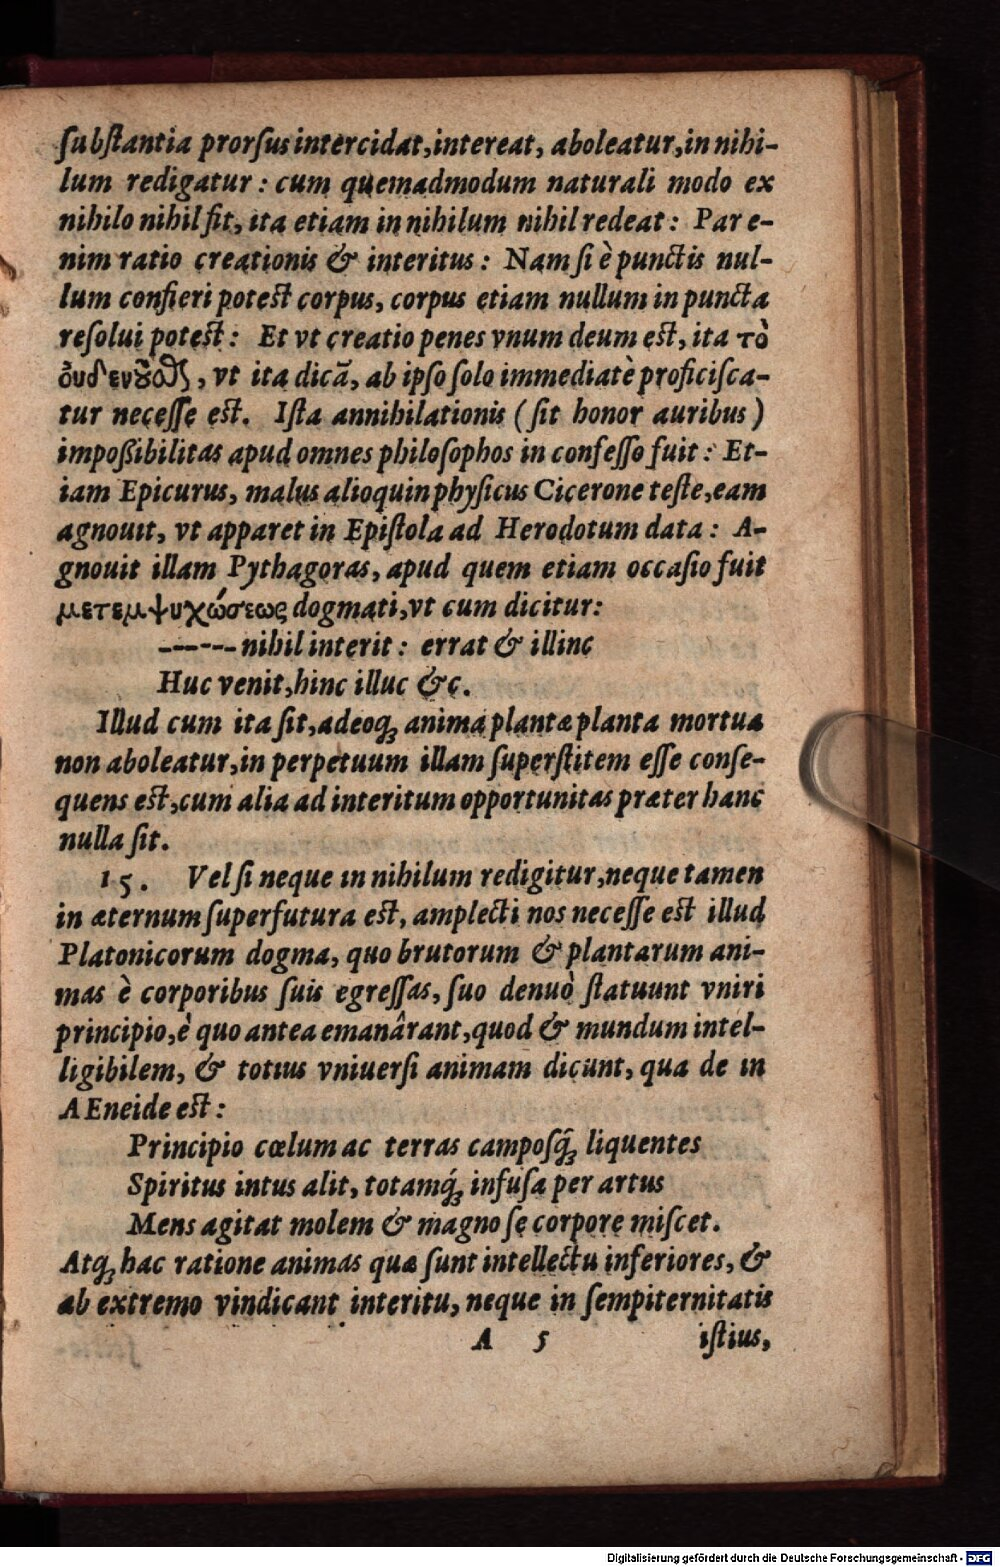 ſubſtantia prorſus intercidat, intereat, aboleatur, in nihi-
lum redigatur: cum quemadmodum naturali modo ex
nihilo nihil fit, ita etiam in nihilum nihil redeat: Par e-
nim ratio creationis & interitus: Nam ſi è punctis nul-
lum confieri poteſt corpus, corpus etiam nullum in puncta
reſolui poteſt: Et vt creatio penes vnum deum eſt, ita τὸ
οὐδενοῦσθαι, vt ita dicã, ab ipſo ſolo immediatè proficiſca-
tur neceſſe eſt. Iſta annihilationis (ſit honor auribus)
impoßibilitas apud omnes philoſophos in confeſſo fuit: Et-
iam Epicurus, malus alioquin phyſicus Cicerone teſte, eam
agnouit, vt apparet in Epiſtola ad Herodotum data: A-
gnouit illam Pythagoras, apud quem etiam occaſio fuit
μετεμψυχώσεως dogmati, vt cum dicitur:
------ nihil interit: errat & illinc
Huc venit, hinc illuc &c.
Illud cum ita ſit, adeoq́ꝫ anima plantæ planta mortua
non aboleatur, in perpetuum illam ſuperſtitem eſſe conſe-
quens eſt, cum alia ad interitum opportunitas præter hanc
nulla ſit.
15. Vel ſi neque in nihilum redigitur, neque tamen
in æternum ſuperfutura eſt, amplecti nos neceſſe eſt illud
Platonicorum dogma, quo brutorum & plantarum ani-
mas è corporibus ſuis egreſſas, ſuo denuò ſtatuunt vniri
principio, è quo antea emanârant, quod & mundum intel-
ligibilem, & totius vniuerſi animam dicunt, qua de in
AEneide eſt:
Principio cœlum ac terras campoſq́ꝫ liquentes
Spiritus intus alit, totamq́ꝫ infuſa per artus
Mens agitat molem & magno ſe corpore miſcet.
Atqꝫ hac ratione animas quæ ſunt intellectu inferiores, &
ab extremo vindicant interitu, neque in ſempiternitatis
A 5 iſtius,
Digitalisierung gefördert durch die Deutsche Forschungsgemeinschaft - DFG